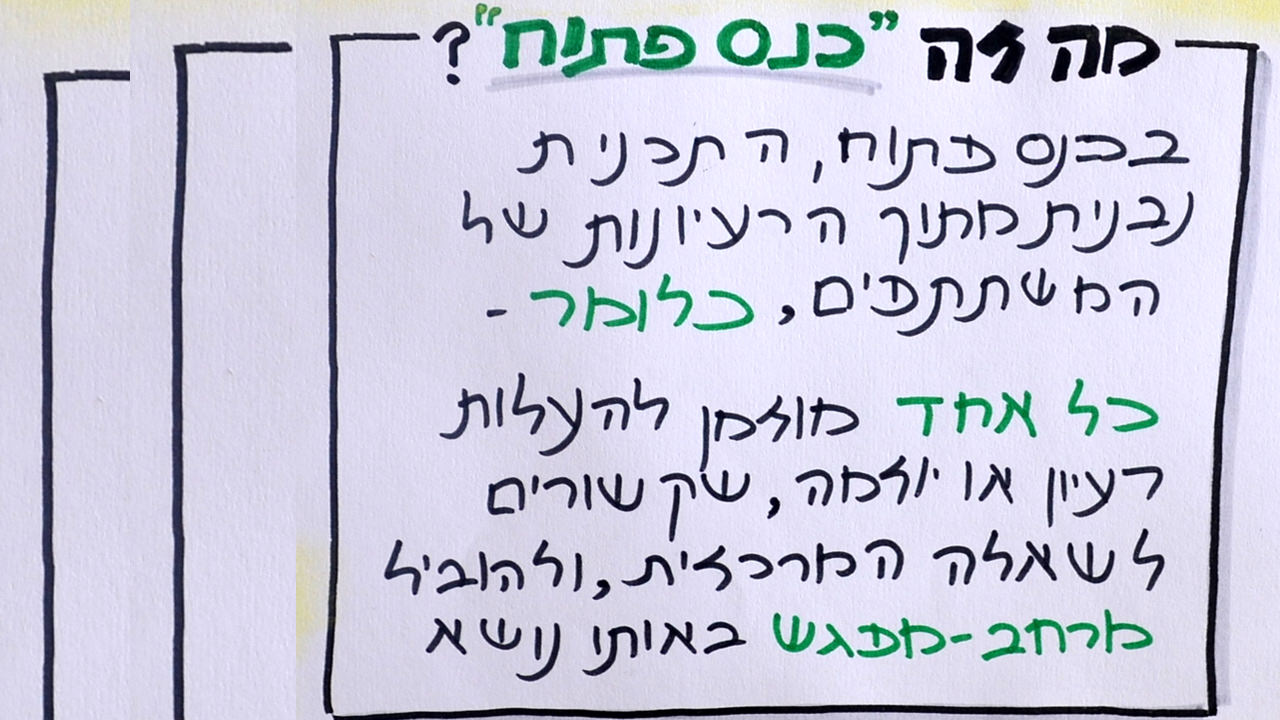 מה זה "כנס פתוח"?
בכנס פתוח, התכנית
נבנית מתוך הרעיונות של
המשתתפים, כלומר -
כל אחד מוזמן להעלות
רעיון או יוזמה, שקשורים
לשאלה המרכזית, ולהוביל
מרחב-מפגש באותו נושא